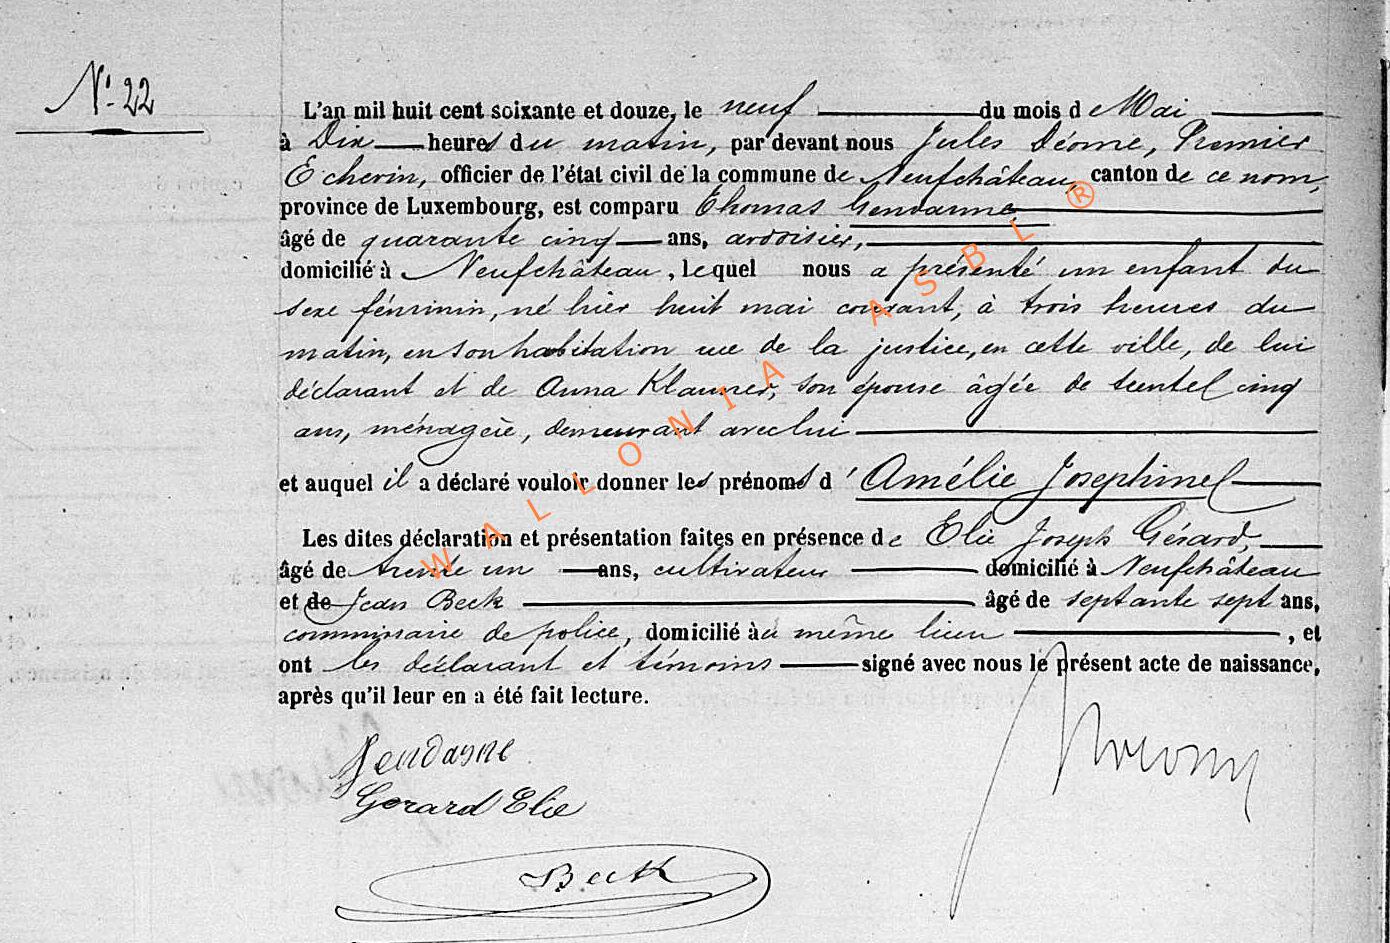 N° 22
L'an mil huit cent soixante et douze, le neuf du mois d Mai
à Dix heures du matin, par devant nous Jules Déome, Premier
Echevin, officier de l'état civil de la commune de Neufchâteau, canton de ce nom,
province de Luxembourg, est comparu Thomas Gendarme,
âgé de quarante cinq ans, ardoisier,
domicilié à Neufchâteau, lequel nous a présenté un enfant du
sexe féminin, né hier huit mai courant, à trois heures du
matin, en son habitation rue de la justice, en cette ville, de lui
déclarant et de Anna Klauner, son épouse âgée de trente cinq
ans, ménagère, demeurant avec lui
et auquel il a déclaré vouloir donner les prénoms d'Amélie Josephine
Les dites déclaration et présentation faites en présence de Elie Joseph Gérard,
âgé de trente un ans, cultivateur domicilié à Neufchâteau
et de Jean Beck âgé de septante sept ans,
commissaire de police, domicilié au même lieu, et
ont les déclarant et témoins signé avec nous le présent acte de naissance,
après qu'il leur en a été fait lecture.
Gendarme
Gerard Elie
Beck
WALLONIA ASBL ®